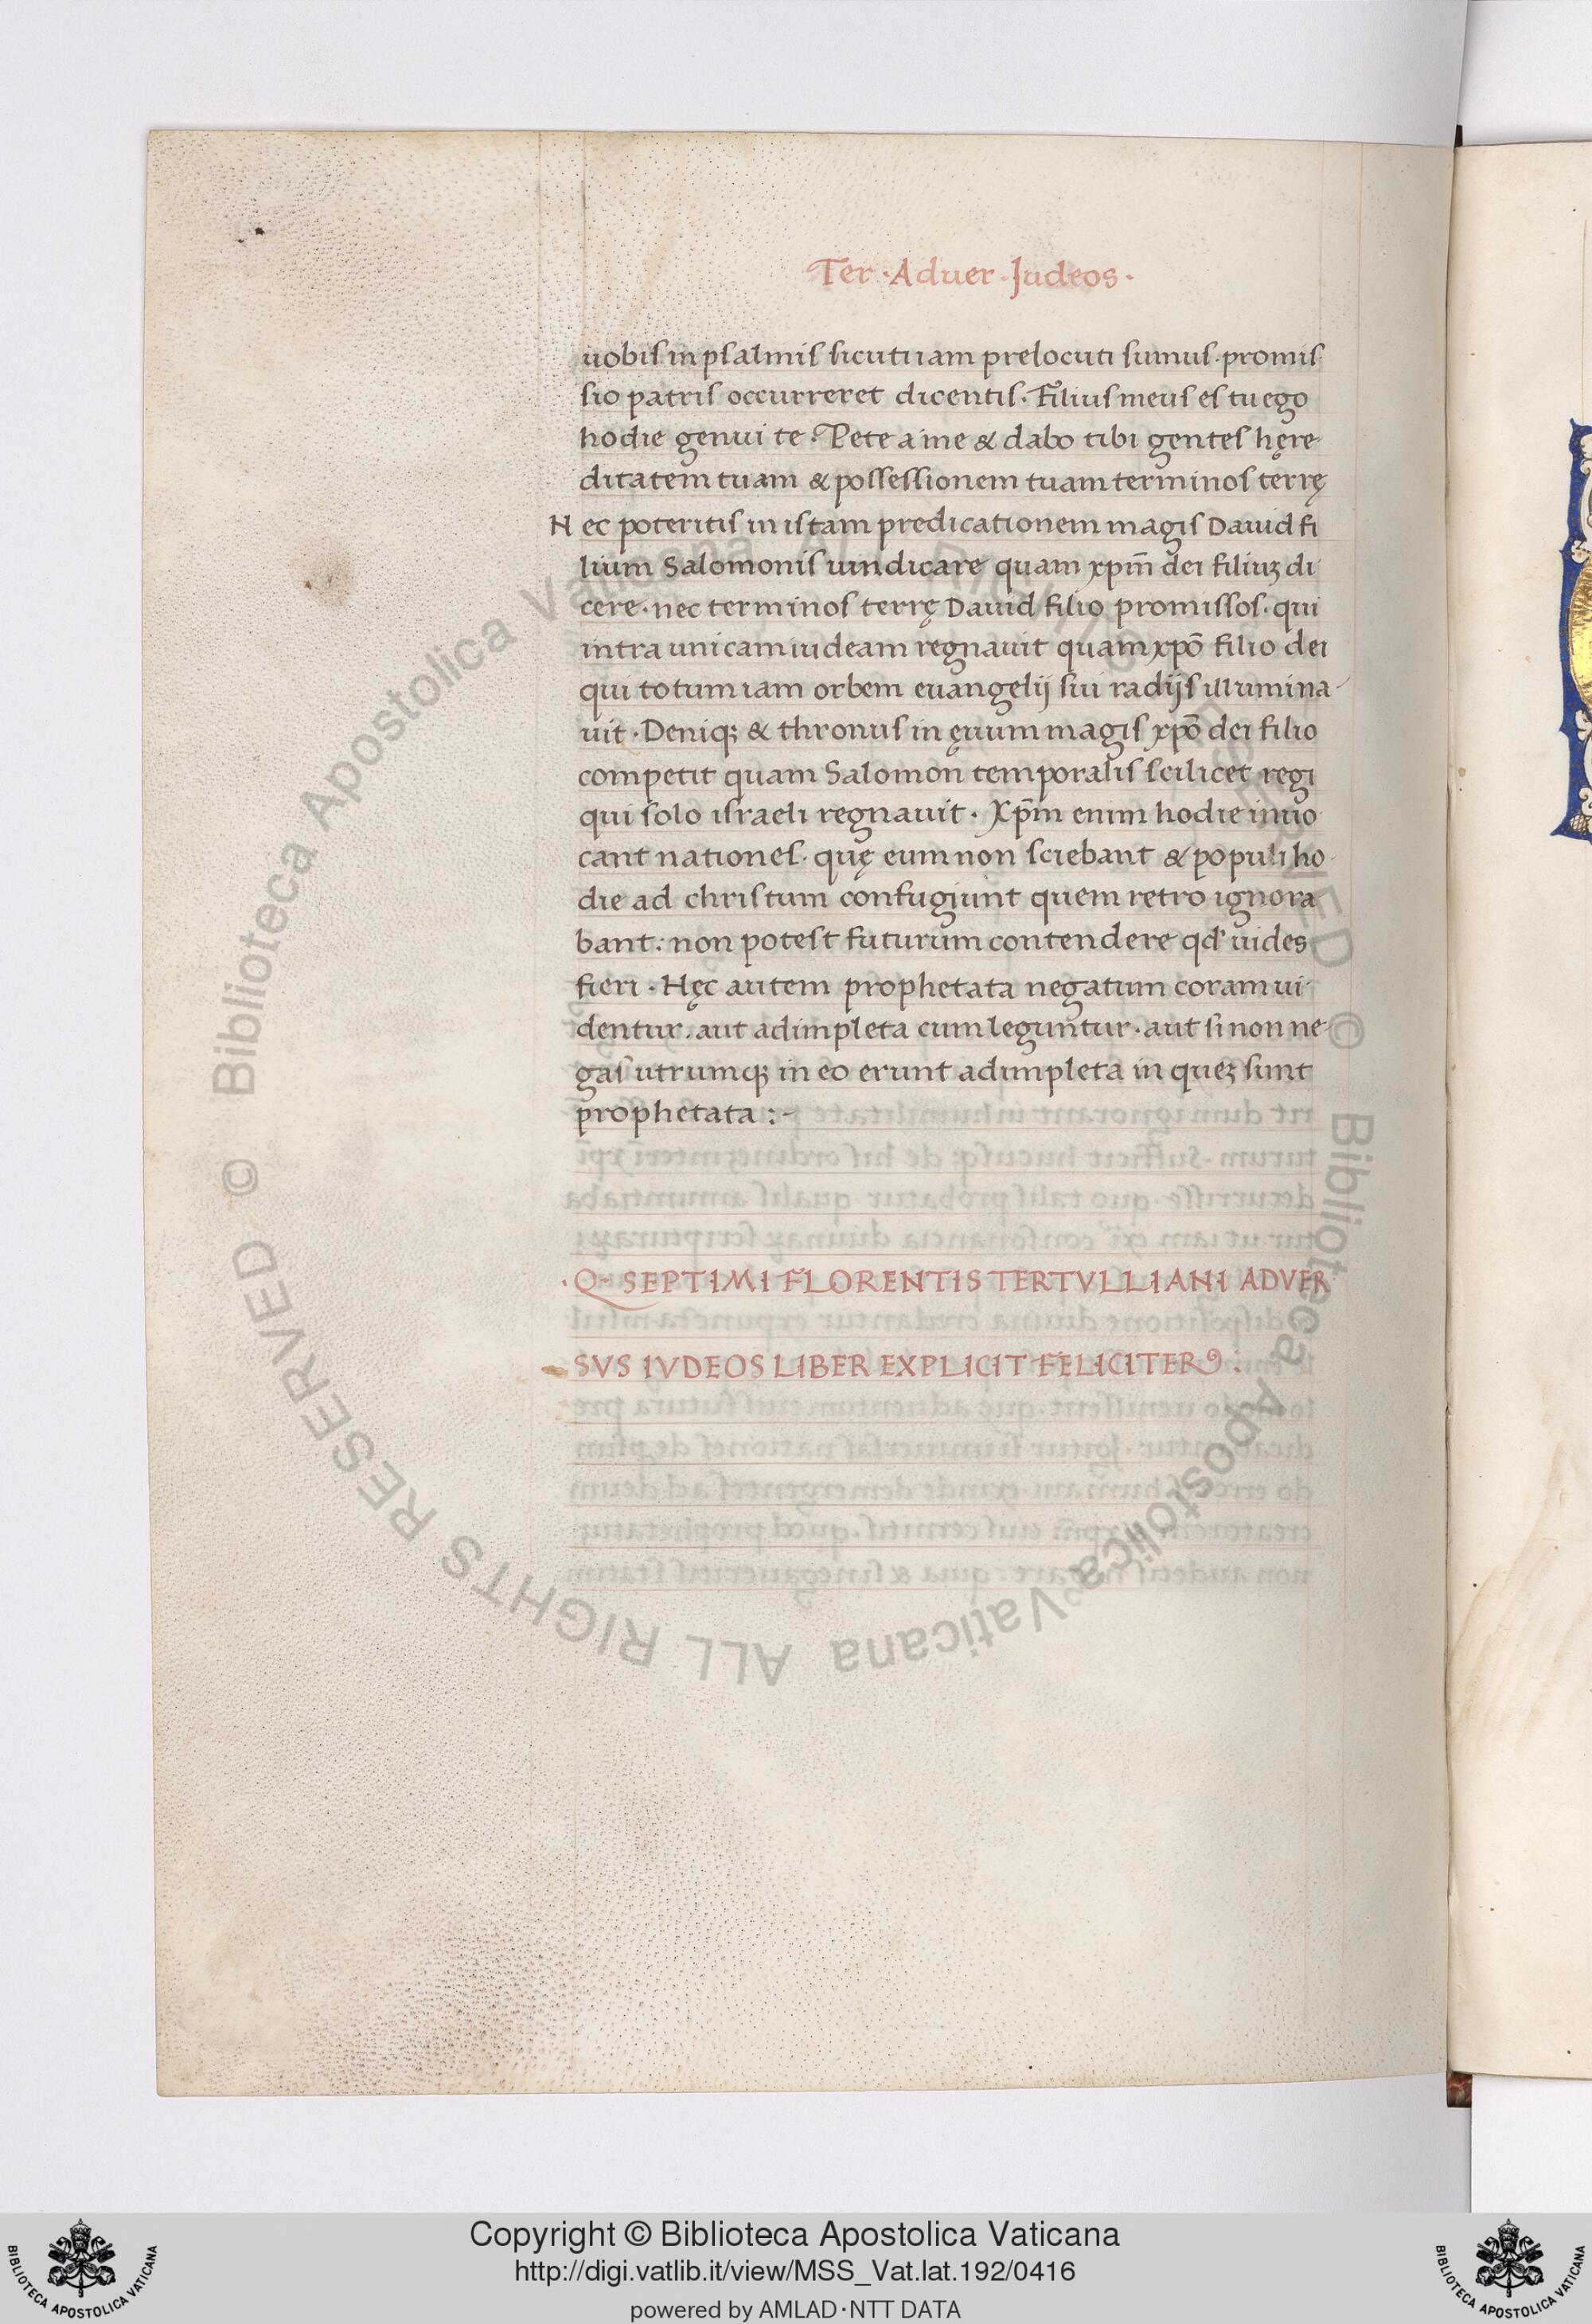 Ter · Aduer · Judeos ·
uobis in psalmis sicuti iam prelocuti sumus · promis
sio patris occurreret dicentis · Filius meus es tu ego
hodie genui te · Pete a me & dabo tibi gentes hęre
ditatem tuam & possessionem tuam terminos terrę
Nec poteritis in istam predicationem magis Dauid fi
lium Salomonis uindicare quam xpm̄ dei filiuꝫ di
cere · nec terminos terrę Dauid filio promissos · qui
intra unicam iudeam regnauit quam xpō filio dei
qui totum iam orbem euangelij sui radijs illumina-
uit · Deniqꝫ & thronus in ęuum magis xpō dei filio
competit quam Salomon temporalis scilicet regi
qui solo israeli regnauit · Xp̄m enim hodie inuo
cant nationes · quę eum non sciebant & populi ho
die ad christum confugiunt quem retro ignora
bant : non potest futurum contendere qd' uides
fieri · Hęc autem prophetata negatum coram ui
dentur . aut adimpleta cum leguntur · aut si non ne
gas utrumqꝫ in eo erunt adimpleta in queꝫ sunt
prophetata : -
· Q · SEPTIMI FLORENTIS TERTVLLIANI ADVER
SVS IVDEOS LIBER EXPLICIT FELICITER :
© Biblioteca Apostolica Vaticana ALL RIGHTS RESERVED © Biblioteca Apostolica Vaticana ALL RIGHTS RESERVED
BIBLIOTECA APOSTOLICA VATICANA
Copyright © Biblioteca Apostolica Vaticana
http://digi.vatlib.it/view/MSS_Vat.lat.192/0416
powered by AMLAD·NTT DATA
BIBLIOTECA APOSTOLICA VATICANA